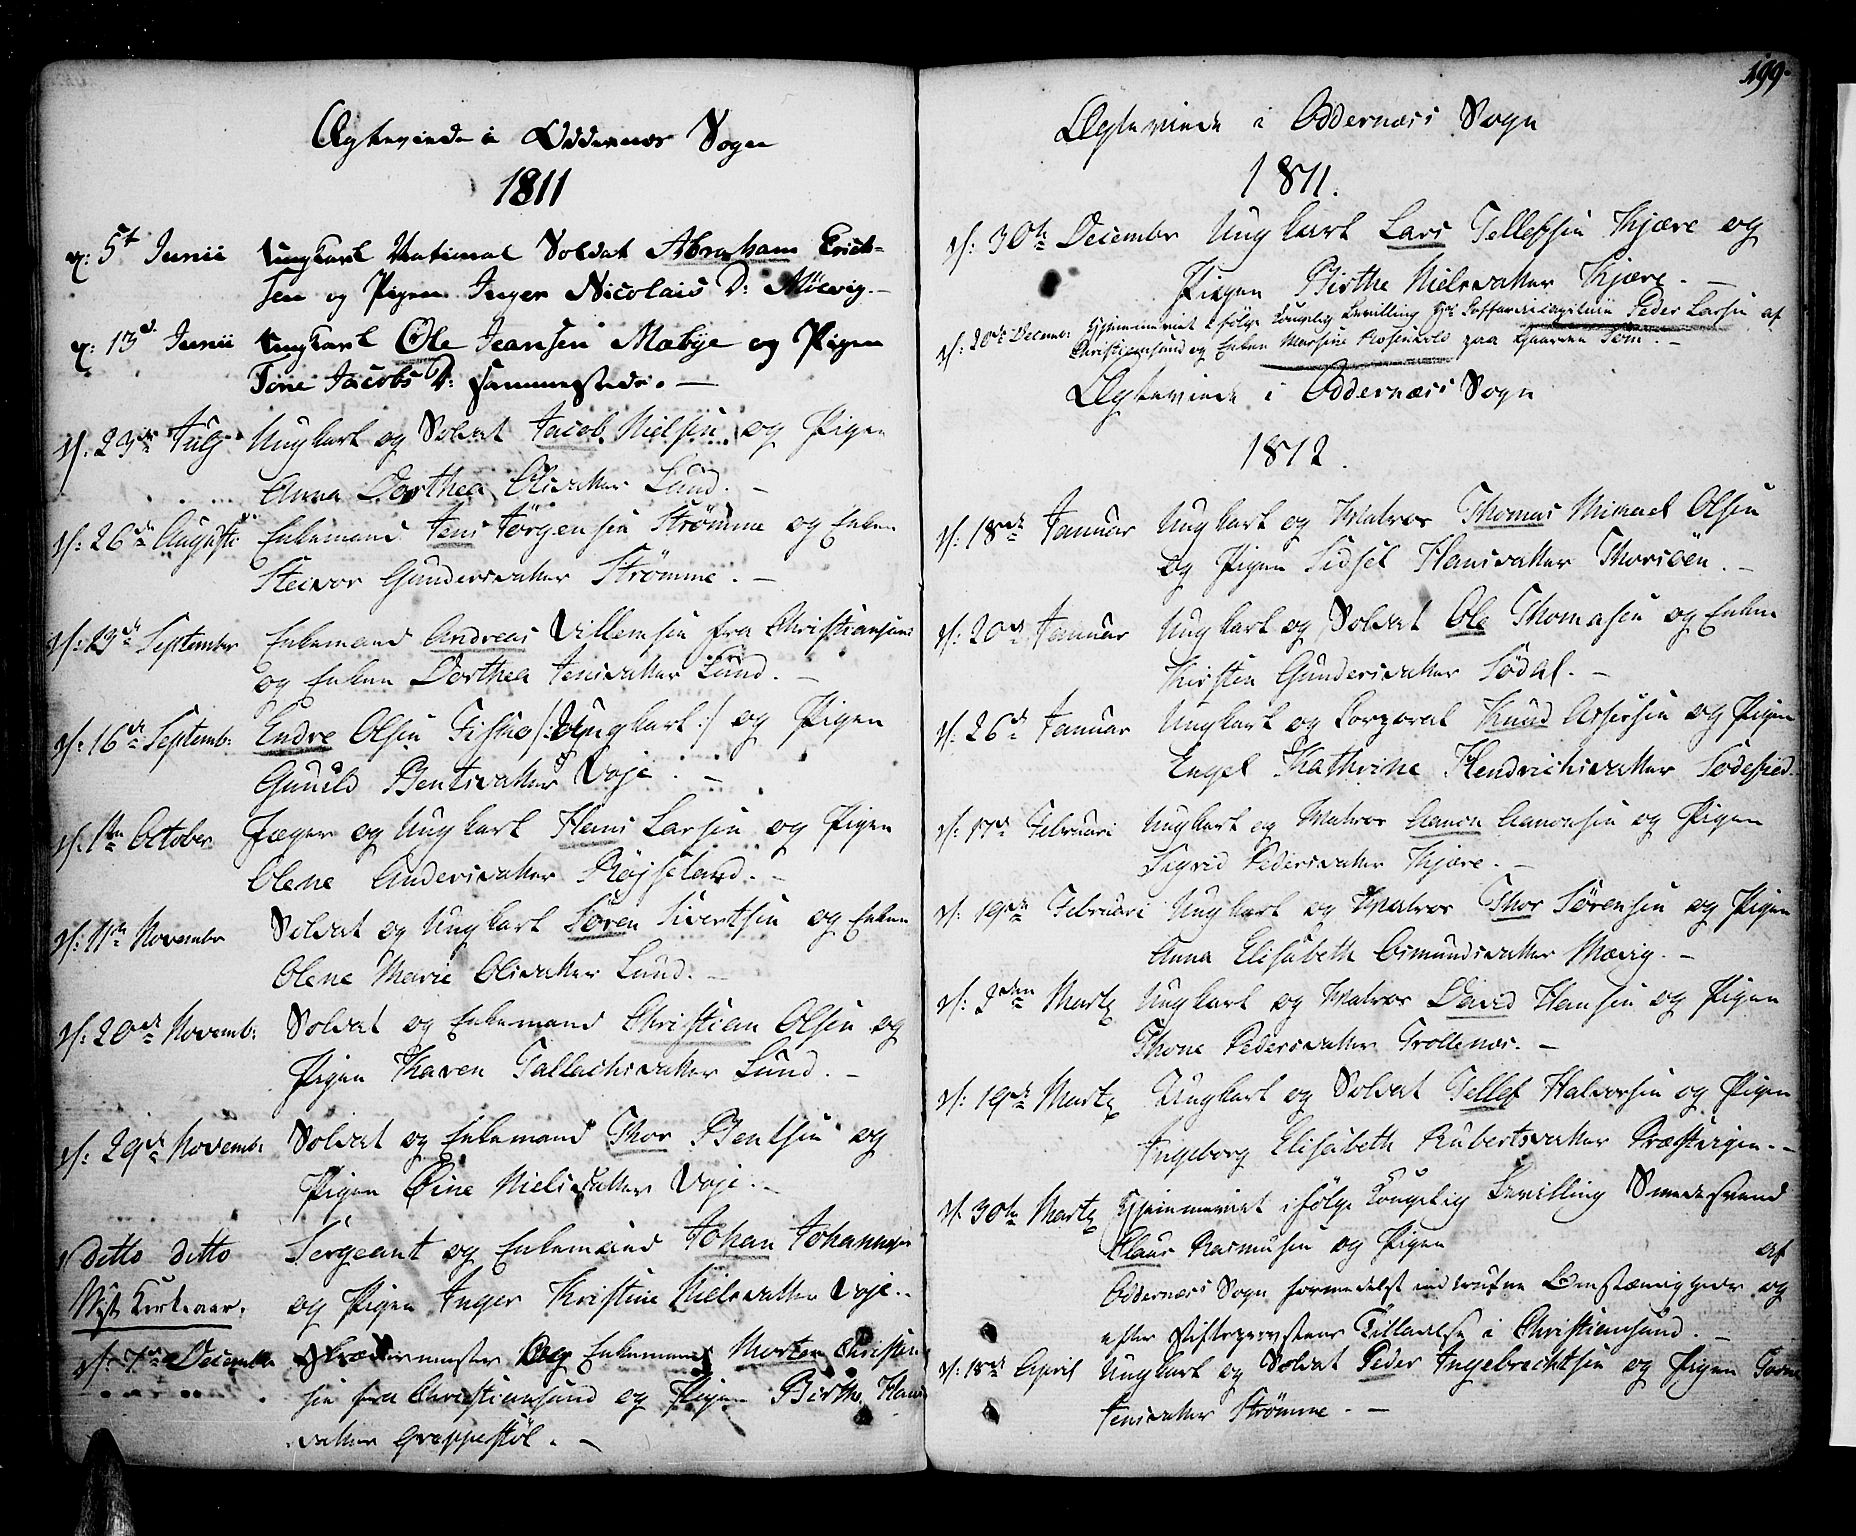 Ægteviede i Oddernæs Sogn
1811
d: 5t Junii Ungkarl National Soldat Abraham Erich-
sen og Pigen Inger Nicolais D: Mölvig.-
d: 13d Junii Ungkarl Ole Jeansen Mæbye og Pigen
Tone Jacobs D: sammesteds. —
d: 23de July Ungkarl og Soldat Jacob Nielsen og Pigen
Anna Dorthea Olisdatter Lund. -
d: 26de Augusti Enkemand Jens Jörgensen Strömme og Enken
Steivor Gundersdatter Strömme. -
d: 13de September Enkemand Andreas Villemsen fra Christiansand
og Enken Dorthea Jensdatter Lund. -
d: 16de Septemb: Endre Olsen Fiskaa /: Ungkarl :/ og Pigen
Gunild Bentsdatter Voje. -
d: 1ste October Jæger og Ungkarl Hans Larsen og Pigen
Olene Andersdatter Röjseland. -
d: 11te Novembr Soldat og Ungkarl Sören Sivertsen og Enken
Olene Marie Olisdatter Lund. -
d: 20de Novemb: Soldat og Enkemand Christian Olsen og
Pigen Karen Tallachsdatter Lund. -
d: 29de Novemb: Soldat og Enkemand Thor Bentsen og
Pigen Öine Nielsdatter Voje. -
ditto ditto Sergeant og Enkemand Johan Johannesen
Nyt Kirkeaar. og Pigen Inger Kristine Nielsdatter Voje.-
d: 7de December Skrædermester og Enkemand Morten Christen
sen fra Christiansand og Pigen Birthe Hans
datter Greppestöl. -
199.
Ægteviede i Oddernæss Sogn
1811.
d: 30te Decembr Ungkarl Lars Tellefsen Kjære og
Pigen Birthe Nielsdatter Kjære. -
d: 20de Decembr Hjemmeviet i fölge kongelig Bevilling Hr Coffardicapitain Peder Larsen af
Christiansand og Enken Marsine Rosenkold paa Gaarden Tom. -
Ægteviede i Oddernæss Sogn
1812.
d: 18de Januar Ungkarl og Matros Thomas Mikael Olsen
og Pigen Sidsel Hansdatter Thorsöen. -
d: 20de Januar Ungkarl og Soldat Ole Thomasen og Enken
Kirsten Gundersdatter Södal. -
d: 26de Januar Ungkarl og Corporal Knud Assersen og Pigen
Engel Kathrine Hendrichsdatter Sodefied.
d: 17de Februari Ungkarl og Matros Aanon Aanonsen og Pigen
Sigrid Pedersdatter Kjære. -
d: 19de Februari Ungkarl og Matros Thor Sörensen og Pigen
Anna Elisabeth Osmundsdatter Mævig. -
d: 2den Martz Ungkarl og Matros David Hansen og Pigen
Thone Pedersdatter Trollenæs. -
d: 19de Martz Ungkarl og Soldat Tellef Halvorsen og Pigen
Ingeborg Elisabeth Rubertsdatter Præstvigen. -
d: 30te Martz Hjemmeviet i fölge Kongelig Bevilling Smedesvend
Claus Rasmusen og Pigen af
Oddernæss Sogn formedelst indtrufne Omstændigheder og
efter Stiftsprovstens Tilladelse i Christiansand. -
d: 18de April Ungkarl og Soldat Peder Ingebrechtsen og Pigen
Jensdatter Strömme. -